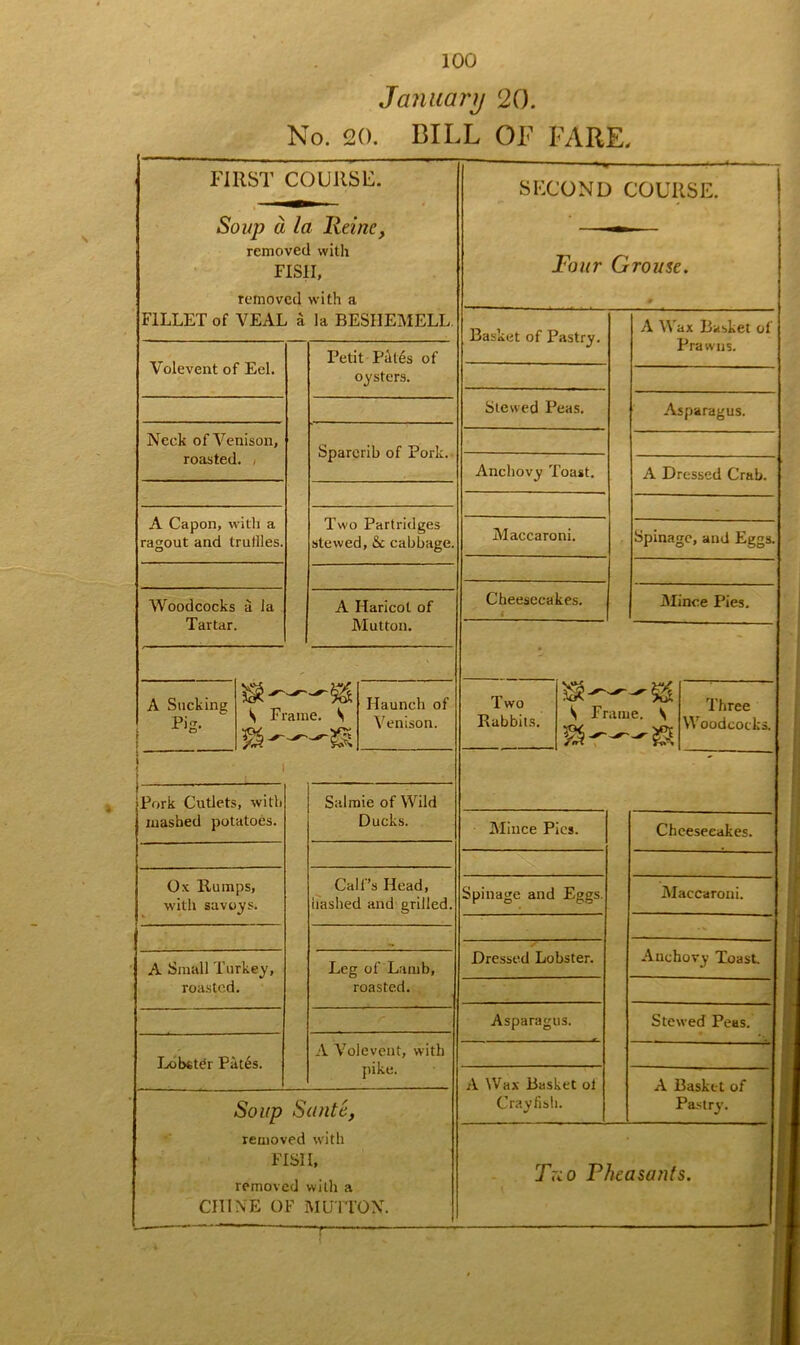 100
January 20.
No. 20. BILL OF FARE.
FIRST COURSE.
Soup à la Reine,
removed with
FISH,
removed with a
FILLET of VEAL à la BESHEMELL
Volevent of Eel.
Petit Pâtés of
oysters.
Neck of Venison,
roasted.
Sparerib of Pork.
A Capon, with a
ragout and truffles.
Two Partridges
stewed, & cabbage.
Woodcocks à la
Tartar.
A Haricot of
Mutton.
A Sucking
Pig.
Frame.
Haunch of
Venison.
Pork Cutlets, with
mashed potatoes.
Salmie of Wild
Ducks.
Ox Rumps,
with savoys.
Calf's Head,
hashed and grilled.
A Small Turkey,
roasted.
Leg of Lamb,
roasted.
Lobster Pàtés.
A Volevent, with
pike.
Soup Santé,
removed with
FISH,
removed with a
CHINE OF MUTTON.
SECOND COURSE.
Four Grouse.
Basket of Pastry.
A Wax Basket of
Prawns.
Stewed Peas.
Asparagus.
Anchovy Toast.
A Dressed Crab.
Maccaroni.
Spinage, and Eggs.
Cheesecakes.
Mince Pies.
Two
Rabbits.
Frame.
Three
Woodcocks.
Mince Pies.
Cheesecakes.
Spinage and Eggs.
Maccaroni.
Dressed Lobster.
Anchovy Toast.
Asparagus.
Stewed Peas.
A Wax Basket of
Crayfish.
A Basket of
Pastry.
Two Pheasants.